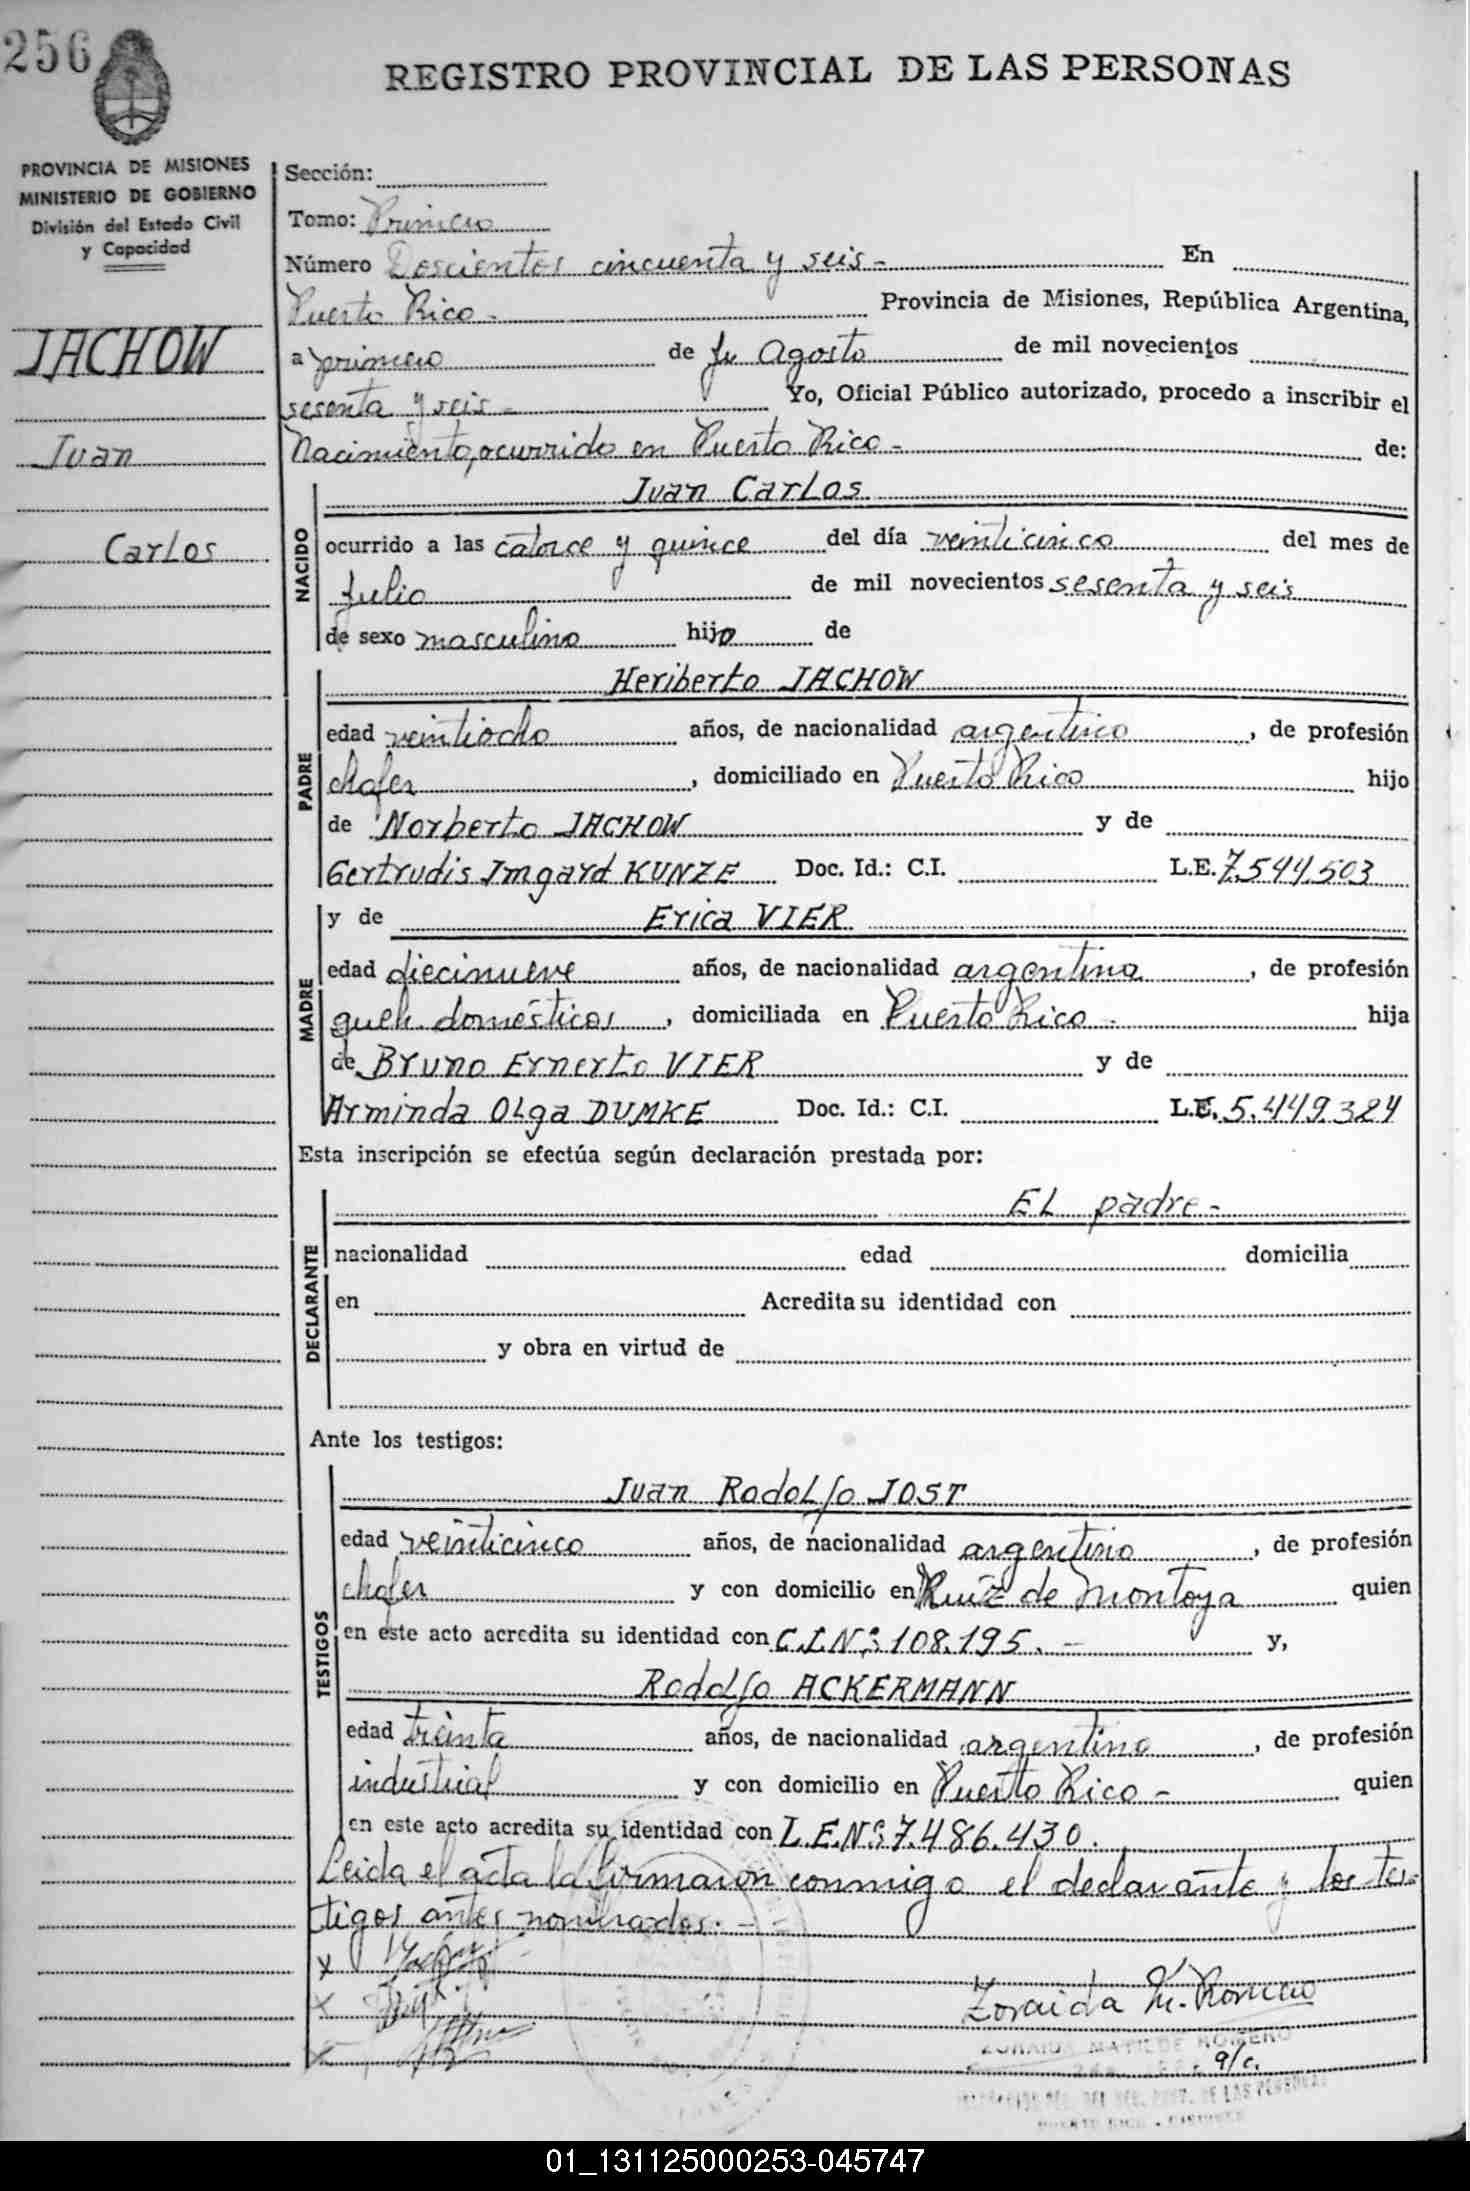 256
REGISTRO PROVINCIAL DE LAS PERSONAS
PROVINCIA DE MISIONES
MINISTERIO DE GOBIERNO
División del Estado Civil
y Capacidad
JACHOW
Juan
Carlos
Sección:
Tomo: Primero
Número Doscientos cincuenta y seis- En
Puerto Rico- Provincia de Misiones, República Argentina,
a primero de Agosto de mil novecientos
sesenta y seis- Yo, Oficial Público autorizado, procedo a inscribir el
Nacimiento, ocurrido en Puerto Rico- de:
NACIDO
Juan Carlos
ocurrido a las catorce y quince del día veinticinco del mes de
Julio de mil novecientos sesenta y seis
de sexo masculino hijo de
PADRE
Heriberto JACHOW
edad veintiocho años, de nacionalidad argentino, de profesión
chofer, domiciliado en Puerto Rico hijo
de Norberto JACHOW y de
Gertrudis Imgard KUNZE Doc. Id.: C.I. L.E. 7.544.503
MADRE
y de Erica VIER
edad diecinueve años, de nacionalidad argentina, de profesión
queh. domésticos, domiciliada en Puerto Rico- hija
de Bruno Ernerto VIER y de
Arminda Olga DUMKE Doc. Id.: C.I. L.E. 5.449.324
Esta inscripción se efectúa según declaración prestada por:
DECLARANTE
EL padre-
nacionalidad edad domicilia
en Acredita su identidad con
y obra en virtud de
Ante los testigos:
TESTIGOS
Juan Rodolfo JOST
edad veinticinco años, de nacionalidad argentino, de profesión
chofer y con domicilio en Ruiz de Montoya quien
en este acto acredita su identidad con C.I.Nº: 108.195.- y,
Rodolfo ACKERMANN
edad treinta años, de nacionalidad argentino, de profesión
industrial y con domicilio en Puerto Rico- quien
en este acto acredita su identidad con L.E.Nº: 7.486.430.
Leida el acta la firmaron conmigo el declarante y los tes-
tigos antes nombrados.-
x
x
x
Zoraida M. Romero
ZORAIDA MATILDE ROMERO
a/c.
DEL REG. PROV. DE LAS PERSONAS
PUERTO RICO - MISIONES
01_131125000253-045747